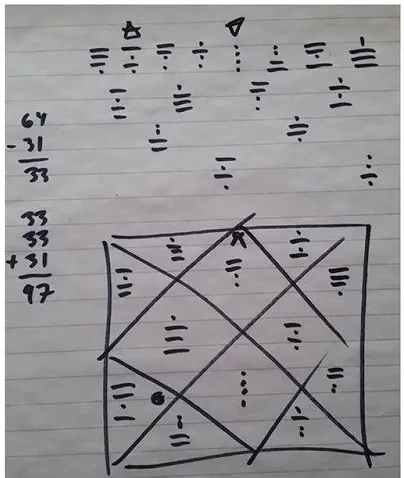 64
- 31
33
33
33
+ 31
97